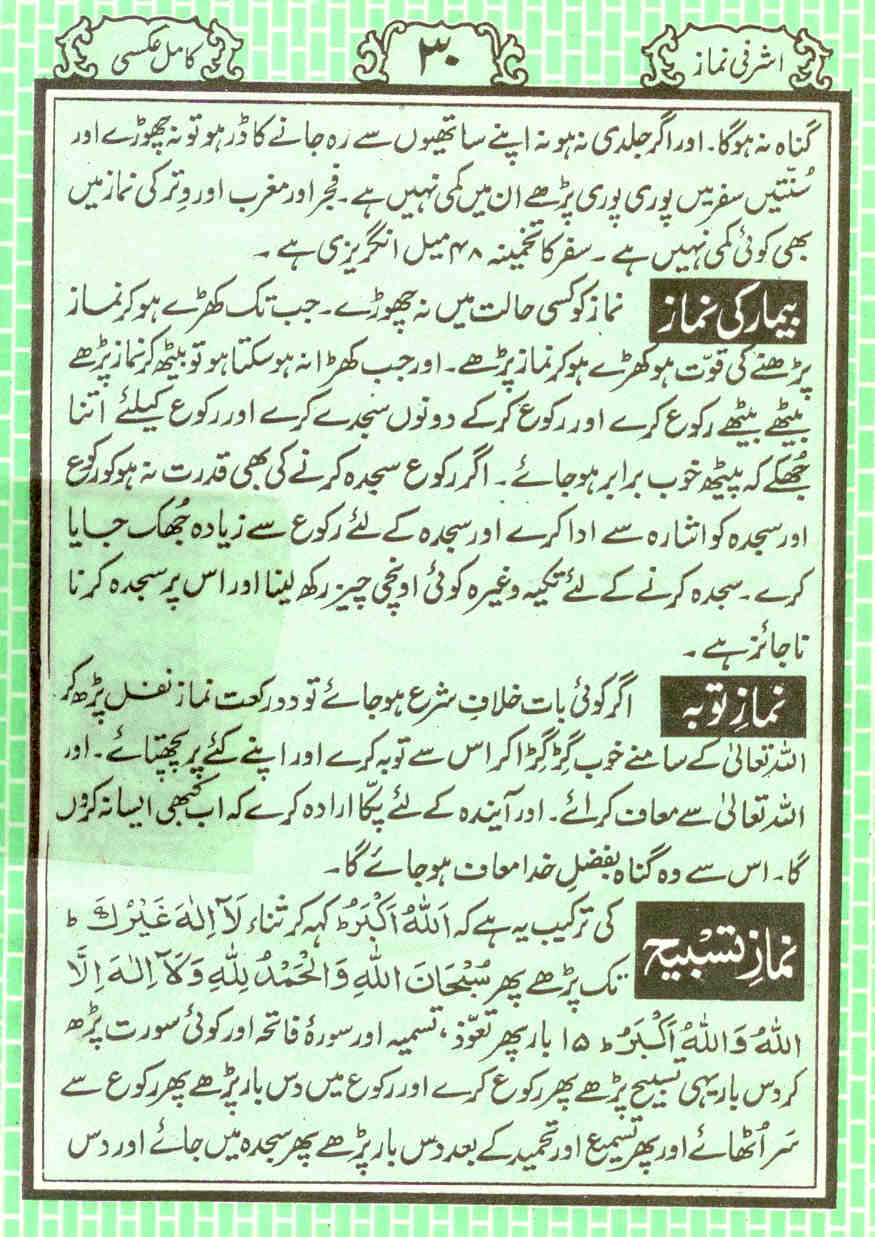 اشرفی نماز
۳۰
کامل عکسی
گناہ نہ ہوگا۔ اور اگر جلدی نہ ہو نہ اپنے ساتھیوں سے رہ جانے کا ڈر ہو تو نہ چھوڑے اور
سُنّتیں سفر میں پوری پوری پڑھے ان میں کمی نہیں ہے۔ فجر اور مغرب اور وِتر کی نماز میں
بھی کوئی کمی نہیں ہے۔ سفر کا تخمینہ ۴۸ میل انگریزی ہے۔
بیمار کی نماز نماز کو کسی حالت میں نہ چھوڑے۔ جب تک کھڑے ہو کر نماز
پڑھنے کی قوّت ہو کھڑے ہو کر نماز پڑھے۔ اور جب کھڑا نہ ہو سکتا ہو تو بیٹھ کر نماز پڑھے
بیٹھے بیٹھے رکوع کرے اور رکوع کر کے دونوں سجدے کرے اور رکوع کیلئے اتنا
جُھکے کہ پیٹھ خوب برابر ہو جائے۔ اگر رکوع سجدہ کرنے کی بھی قدرت نہ ہو کو رکوع
اور سجدہ کو اشارہ سے ادا کرے اور سجدہ کے لئے رکوع سے زیادہ جُھک جایا
کرے۔ سجدہ کرنے کے لئے تکیہ وغیرہ کوئی اونچی چیز رکھ لینا اور اس پر سجدہ کرنا
ناجائز ہے۔
نمازِ توبہ اگر کوئی بات خلافِ شرع ہو جائے تو دو رکعت نماز نفل پڑھ کر
اللہ تعالیٰ کے سامنے خوب گِڑگِڑا کر اس سے توبہ کرے اور اپنے کئے پر پچھتائے۔ اور
اللہ تعالیٰ سے معاف کرائے۔ اور آیندہ کے لئے پکّا ارادہ کرے کہ اب کبھی ایسا نہ کروں
گا۔ اس سے وہ گناہ بفضلِ خدا معاف ہو جائے گا۔
نمازِ تسْبِیح کی ترکیب یہ ہے کہ اَللّٰهُ اَكْبَرُ ط کہہ کر ثناء لَآ اِلٰهَ غَيْرُكَ ط
تک پڑھے پھر سُبْحَانَ اللّٰهِ وَالْحَمْدُ لِلّٰهِ وَلَآ اِلٰهَ اِلَّا
اللّٰهُ وَاللّٰهُ اَكْبَرُ ط ۱۵ بار پھر تعوّذ، تسمیہ اور سورۂ فاتحہ اور کوئی سورت پڑھ
کر دس بار یہی تسبیح پڑھے پھر رکوع کرے اور رکوع میں دس بار پڑھے پھر رکوع سے
سَر اُٹھائے اور پھر تسمیع اور تحمید کے بعد دس بار پڑھے پھر سجدہ میں جائے اور دس